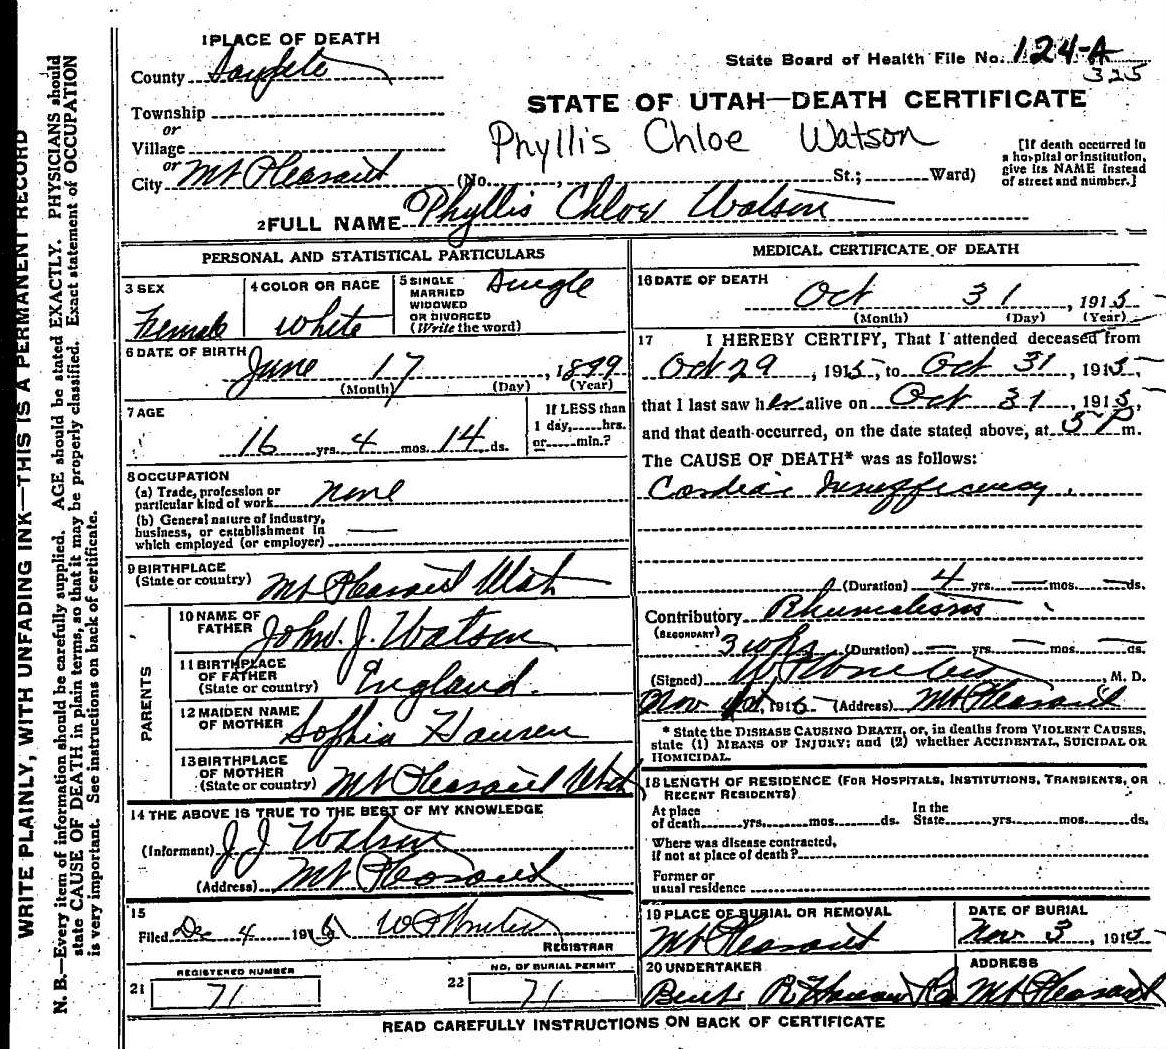 WRITE PLAINLY, WITH UNFADING INK—THIS IS A PERMANENT RECORD
N. B.—Every item of information should be carefully supplied. AGE should be stated EXACTLY. PHYSICIANS should
state CAUSE OF DEATH in plain terms, so that it may be properly classified. Exact statement of OCCUPATION
is very important. See instructions on back of certificate.
1 PLACE OF DEATH
County Sanpete
State Board of Health File No. 124-A
325
STATE OF UTAH—DEATH CERTIFICATE
Township
or
Village
or
Phyllis Chloe Watson
[If death occurred in
a hospital or institution,
give its NAME instead
of street and number.]
City Mt Pleasant (No. St.; Ward)
2 FULL NAME Phyllis Chloe Watson
PERSONAL AND STATISTICAL PARTICULARS
3 SEX
Female
4 COLOR OR RACE
White
5 SINGLE
MARRIED
WIDOWED
OR DIVORCED
(Write the word)
Single
6 DATE OF BIRTH
June 17, 1899
(Month) (Day) (Year)
7 AGE
16 yrs. 4 mos. 14 ds.
If LESS than
1 day, hrs.
or min.?
8 OCCUPATION
(a) Trade, profession or
particular kind of work none
(b) General nature of industry,
business, or establishment in
which employed (or employer)
9 BIRTHPLACE
(State or country) Mt Pleasant Utah
PARENTS
10 NAME OF
FATHER John J. Watson
11 BIRTHPLACE
OF FATHER
(State or country) England.
12 MAIDEN NAME
OF MOTHER Sophia Hansen
13 BIRTHPLACE
OF MOTHER
(State or country) Mt Pleasant Utah
14 THE ABOVE IS TRUE TO THE BEST OF MY KNOWLEDGE
(Informant) J J Watson
(Address) Mt Pleasant
15
Filed Dec 4 191
REGISTRAR
21
REGISTERED NUMBER
71
22
NO. OF BURIAL PERMIT
71
MEDICAL CERTIFICATE OF DEATH
16 DATE OF DEATH
Oct 31, 1915
(Month) (Day) (Year)
17 I HEREBY CERTIFY, That I attended deceased from
Oct 29, 1915, to Oct 31, 1915,
that I last saw her alive on Oct 31, 1915,
and that death occurred, on the date stated above, at 5 P m.
The CAUSE OF DEATH* was as follows:
Cardiac Insufficiency.
(Duration) 4 yrs. — mos. — ds.
Contributory Rhumatism
(SECONDARY)
3 wks (Duration) — yrs. — mos. — ds.
(Signed) , M. D.
Nov , 191 (Address) Mt Pleasant
* State the DISEASE CAUSING DEATH, or, in deaths from VIOLENT CAUSES,
state (1) MEANS OF INJURY; and (2) whether ACCIDENTAL, SUICIDAL OR
HOMICIDAL.
18 LENGTH OF RESIDENCE (FOR HOSPITALS, INSTITUTIONS, TRANSIENTS, OR
RECENT RESIDENTS)
At place
of death yrs. mos. ds.
In the
State yrs. mos. ds.
Where was disease contracted,
if not at place of death?
Former or
usual residence
19 PLACE OF BURIAL OR REMOVAL
Mt Pleasant
DATE OF BURIAL
Nov 3, 1915
20 UNDERTAKER
R Hansen Co
ADDRESS
Mt Pleasant
READ CAREFULLY INSTRUCTIONS ON BACK OF CERTIFICATE